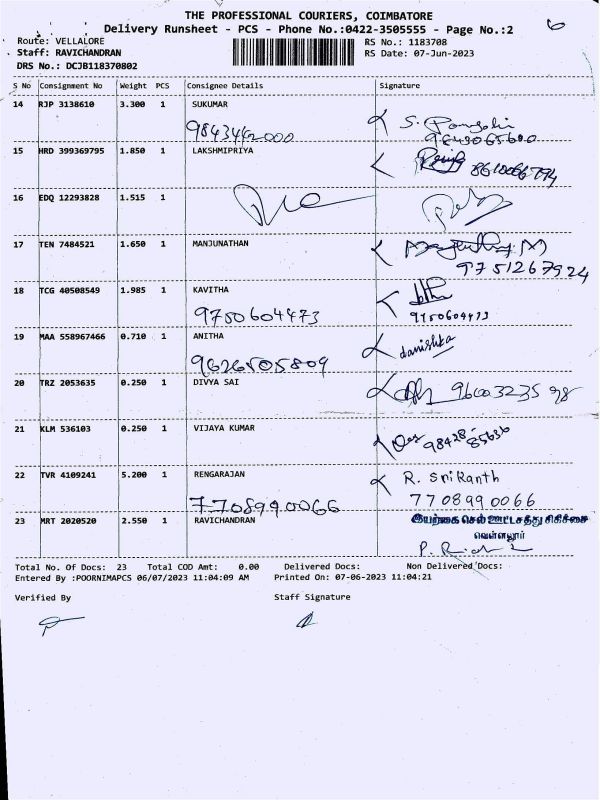 THE PROFESSIONAL COURIERS, COIMBATORE
Delivery Runsheet - PCS - Phone No.:0422-3505555 - Page No.:2
6
Route: VELLALORE
RS No.: 1183708
Staff: RAVICHANDRAN
RS Date: 07-Jun-2023
DRS No.: DCJB118370802
S No Consignment No Weight PCS Consignee Details Signature
14 RJP 3138610 3.300 1 SUKUMAR
9843442000
15 HRD 399369795 1.850 1 LAKSHMIPRIYA
8610066794
16 EDQ 12293828 1.515 1
17 TEN 7484521 1.650 1 MANJUNATHAN
9751267924
18 TCG 40508549 1.985 1 KAVITHA
9750604473 9750604473
19 MAA 558967466 0.710 1 ANITHA
9626505809 danishka
20 TRZ 2053635 0.250 1 DIVYA SAI
21 KLM 536103 0.250 1 VIJAYA KUMAR
22 TVR 4109241 5.200 1 RENGARAJAN R. SriKanth
7708990066 7708990066
23 MRT 2020520 2.550 1 RAVICHANDRAN இயற்கை செல் ஊட்டசத்து சிகிச்சை
வெள்ளலூர்
Total No. Of Docs: 23 Total COD Amt: 0.00 Delivered Docs: Non Delivered Docs:
Entered By :POORNIMAPCS 06/07/2023 11:04:09 AM Printed On: 07-06-2023 11:04:21
Verified By Staff Signature